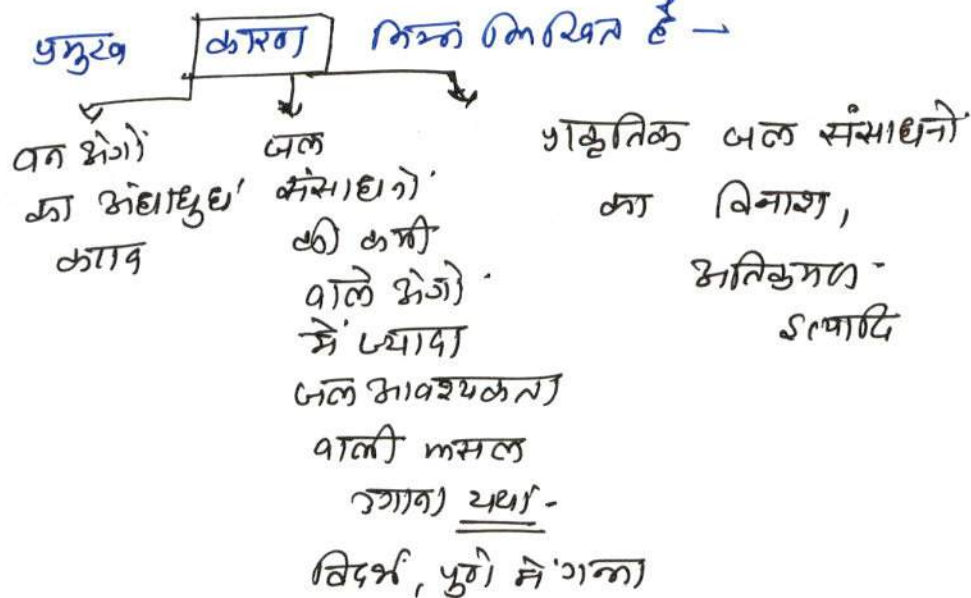 प्रमुख कारण निम्नलिखित है -
वन क्षेत्रों
का अंधाधुंध
कटाव
जल
संसाधनों
की कमी
वाले क्षेत्रों
में ज्यादा
जल आवश्यकता
वाली फसल
उगाना यथा -
विदर्भ, पुणे में गन्ना
प्राकृतिक जल संसाधनों
का विनाश,
अतिक्रमण
इत्यादि